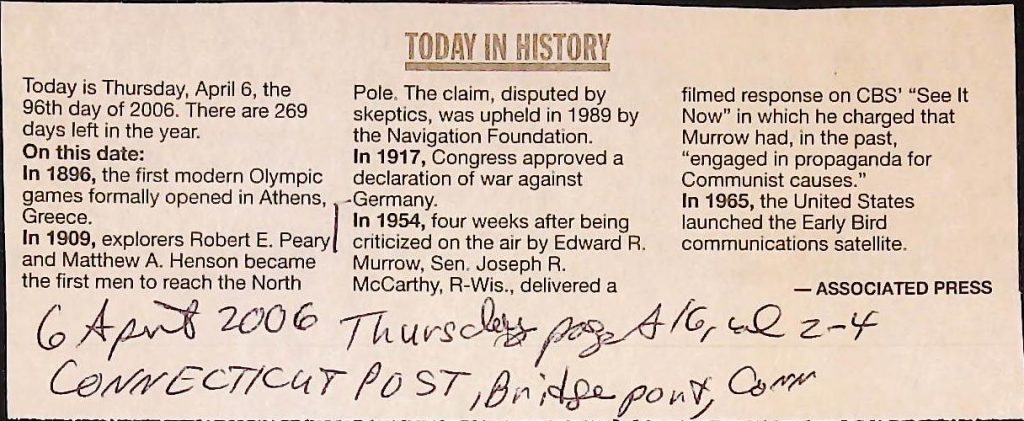 TODAY IN HISTORY
Today is Thursday, April 6, the
96th day of 2006. There are 269
days left in the year.
On this date:
In 1896, the first modern Olympic
games formally opened in Athens,
Greece.
In 1909, explorers Robert E. Peary
and Matthew A. Henson became
the first men to reach the North
Pole. The claim, disputed by
skeptics, was upheld in 1989 by
the Navigation Foundation.
In 1917, Congress approved a
declaration of war against
Germany.
In 1954, four weeks after being
criticized on the air by Edward R.
Murrow, Sen. Joseph R.
McCarthy, R-Wis., delivered a
filmed response on CBS' “See It
Now” in which he charged that
Murrow had, in the past,
“engaged in propaganda for
Communist causes.”
In 1965, the United States
launched the Early Bird
communications satellite.
— ASSOCIATED PRESS
6 April 2006 Thursday page A16, col 2-4
CONNECTICUT POST, Bridgeport, Conn